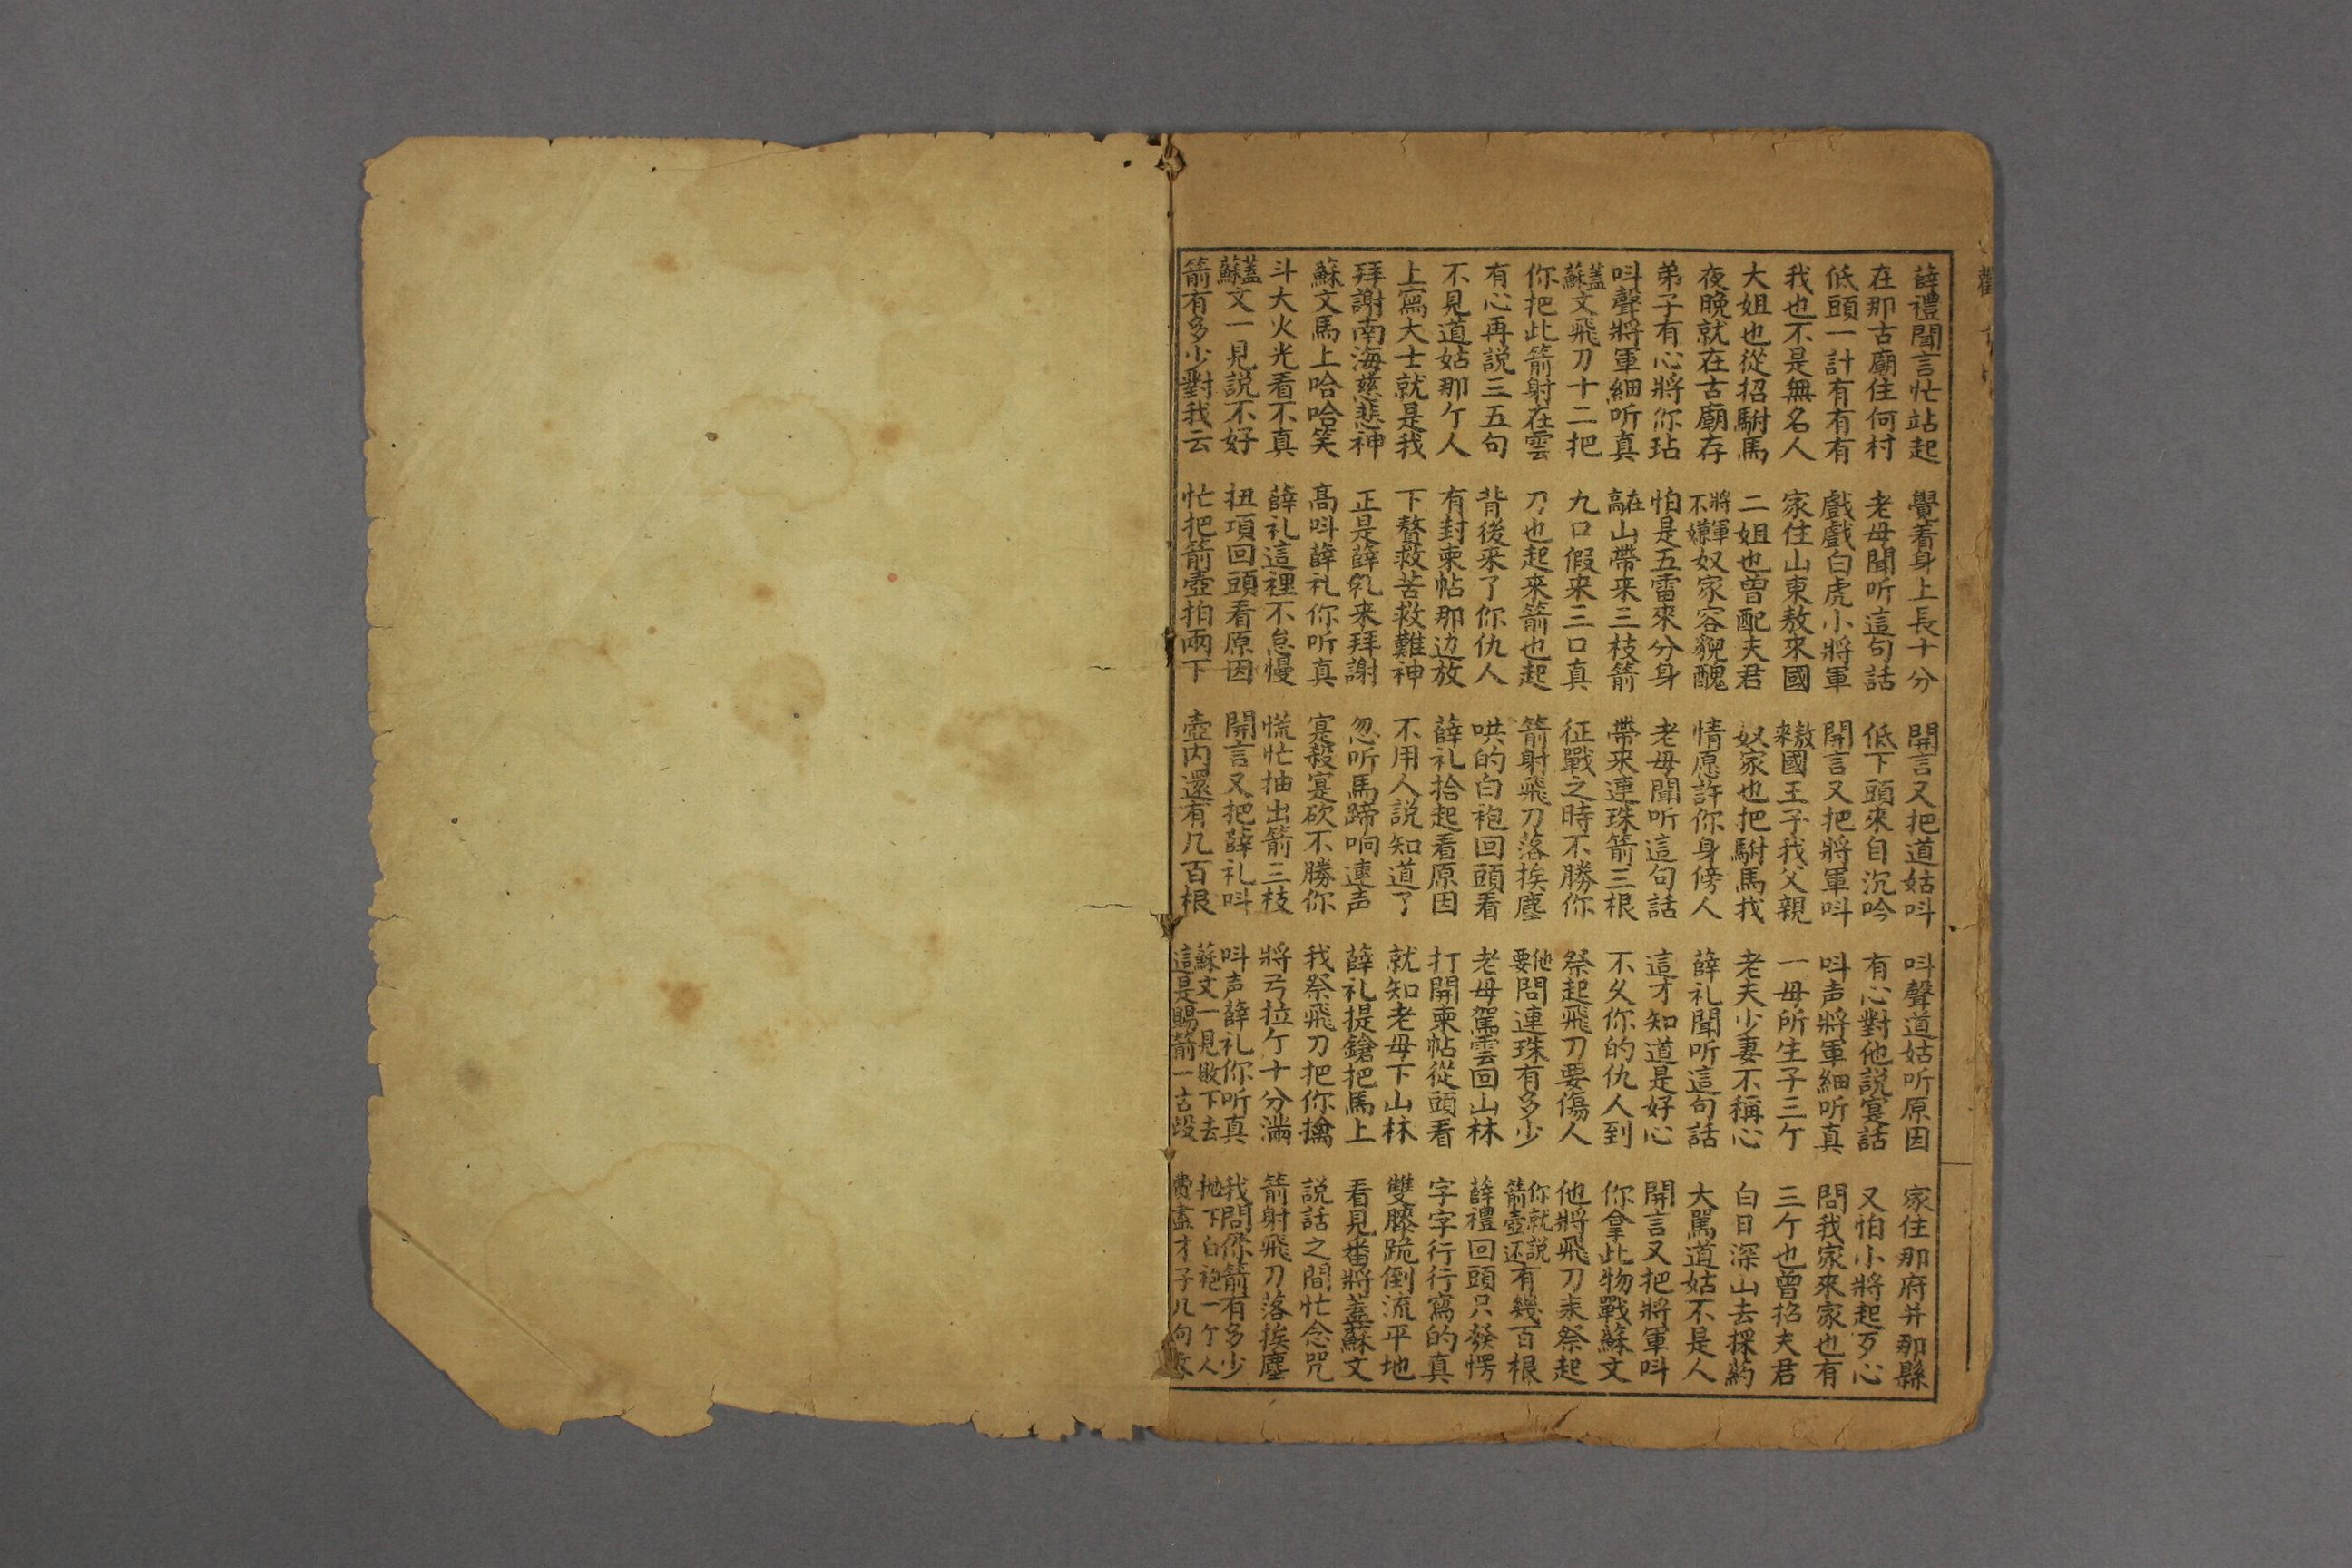 薛禮聞言忙站起 覺着身上長十分 開言又把道姑呌 呌聲道姑听原因 家住那府并那縣
在那古廟住何村 老母聞听這句話 低下頭來自沉吟 有心對他説寔話 又怕小將起歹心
低頭一計有有有 戲戲白虎小將軍 開言又把將軍呌 呌声將軍細听真 問我家來家也有
我也不是無名人 家住山東敖來國 敖來國王子我父親 一母所生子三亇 三亇也曾招夫君
大姐也從招駙馬 二姐也曾配夫君 奴家也把駙馬找 老夫少妻不稱心 白日深山去採葯
夜晚就在古廟存 將軍不嫌奴家容貌醜 情愿許你身傍人 薛礼聞听這句話 大罵道姑不是人
弟子有心將你玷 怕是五雷來分身 老母聞听這句話 這才知道是好心 開言又把將軍呌
呌聲將軍細听真 在高山帶来三枝箭 帶来連珠箭三根 不久你的仇人到 你拿此物戰蘇文
蓋蘇文飛刀十二把 九口假来三口真 征戰之時不勝你 祭起飛刀要傷人 他將飛刀来祭起
你把此箭射在雲 刀也起来箭也起 箭射飛刀落挨塵 他要問連珠有多少 你就説箭壺还有幾百根
有心再説三五句 背後来了你仇人 哄的白袍回頭看 老母駕雲回山林 薛禮回頭只發愣
不見道姑那亇人 有封柬帖那边放 薛礼拾起看原因 打開柬帖從頭看 字字行行寫的真
上寫大士就是我 下聱救苦救難神 不用人説知道了 就知老母下山林 雙膝跪倒流平地
拜謝南海慈悲神 正是薛礼来拜謝 忽听馬蹄响連声 薛礼提鎗把馬上 看見番將蓋蘇文
蘇文馬上哈哈笑 高呌薛礼你听真 寔殺寔砍不勝你 我祭飛刀把你擒 説話之間忙念咒
斗大火光看不真 薛礼這裡不怠慢 慌忙抽出箭三枝 將弓拉亇十分滿 箭射飛刀落挨塵
蓋蘇文一見説不好 扭項回頭看原因 開言又把薛礼呌 呌声薛礼你听真 我問你箭有多少
箭有多少對我云 忙把箭壺拍兩下 壺内還有几百根 蘇文一見敗下去 抛下白袍一亇人
這是賜箭一古段 費盡才子几句文